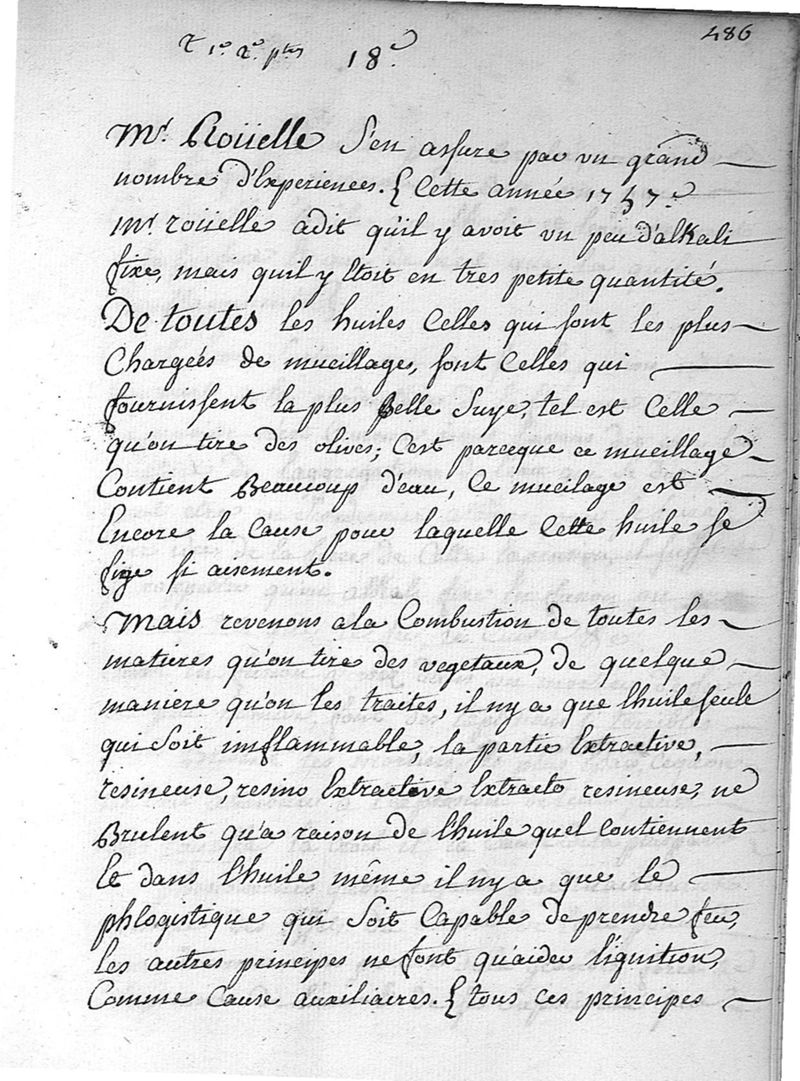 486
t 1.e 2.e ptes 18.e
Mr. Roüelle S'en assure par un grand
nombre d'Experiences. Cette année 1757.
Mr. roüelle adit qu'il y avoit un peu d'alkali
fixe, mais quil y Etoit en tres petite quantité.
De toutes les huiles Celles qui sont les plus
Chargeés de mucillage, sont Celles qui
fournissent la plus Belle Suye, tel est Celle
qu'on tire des olives; C'est parceque ce mucillage
Contient Beaucoup d'eau, Ce mucilage est
Encore la Cause pour laquelle Cette huile se
fige si aisement.
Mais revenons a la Combustion de toutes les
matieres qu'on tire des vegetaux, de quelque
maniere qu'on les traites, il ny a que l'huile seule
qui Soit imflammable, la partie Extractive,
resineuse, resino Extractive Extracto resineuse, ne
Brulent qu'a raison de l'huile quel Contiennent
Et dans l'huile même il ny a que le
phlogistique qui Soit Capable de prendre feu,
les autres principes ne font qu'aider l'ignition,
Comme Cause auxiliaires. tous ces principes